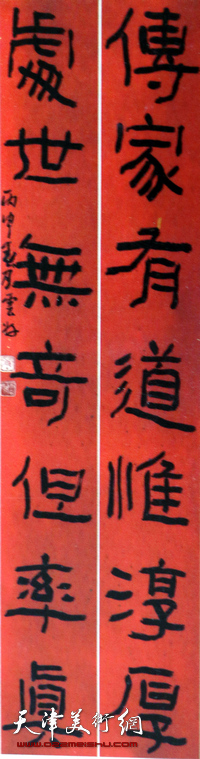 傳家有道惟淳厚
處世無奇但率真
丙申春月雲
天津美術網